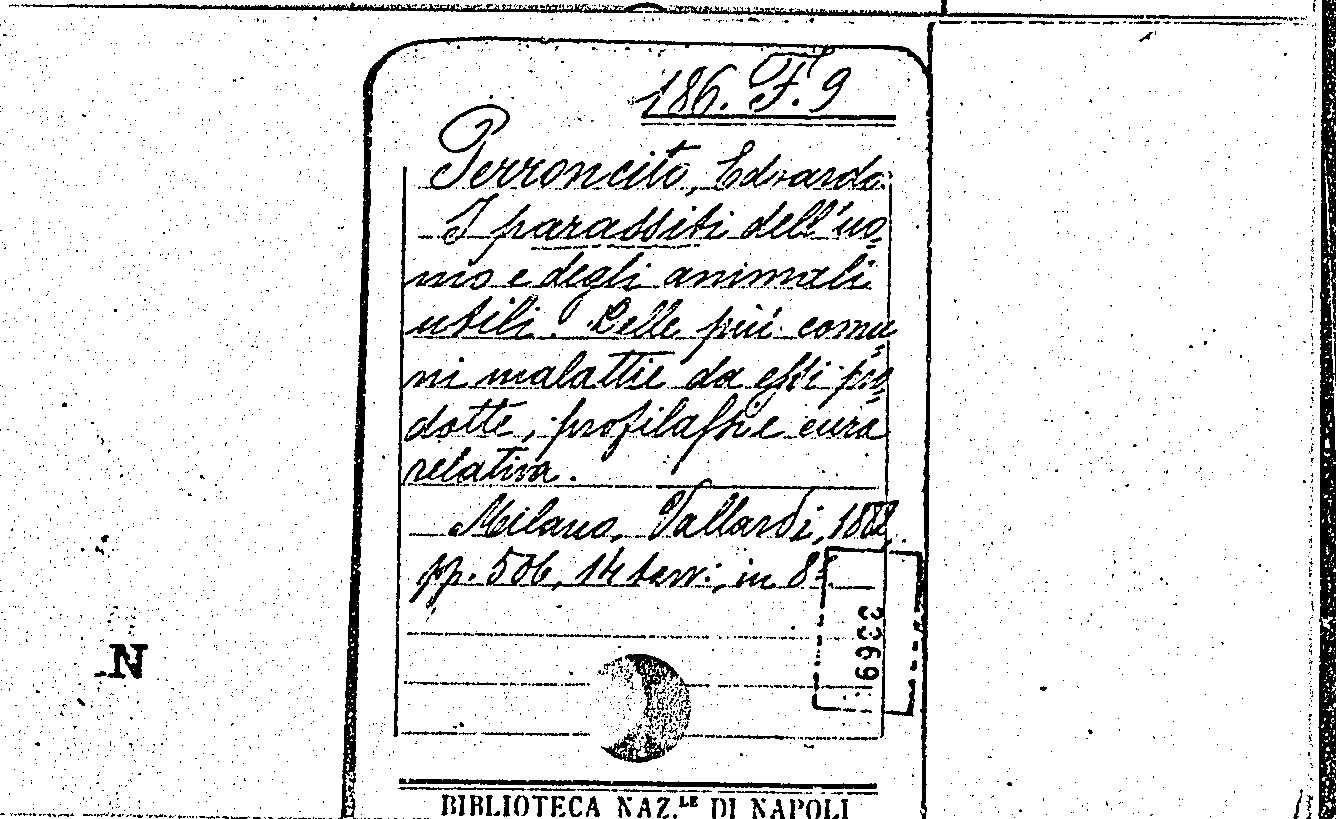 186. F. 9
Perroncito, Edoardo.
I parassiti dell'uo=
mo e degli animali
utili. Delle più comu=
ni malattie da essi pro=
dotte, profilassi e cura
relativa.
Milano, Vallardi, 1882.
pp. 506, 14 tavv., in 8º
N
BIBLIOTECA NAZ.LE DI NAPOLI